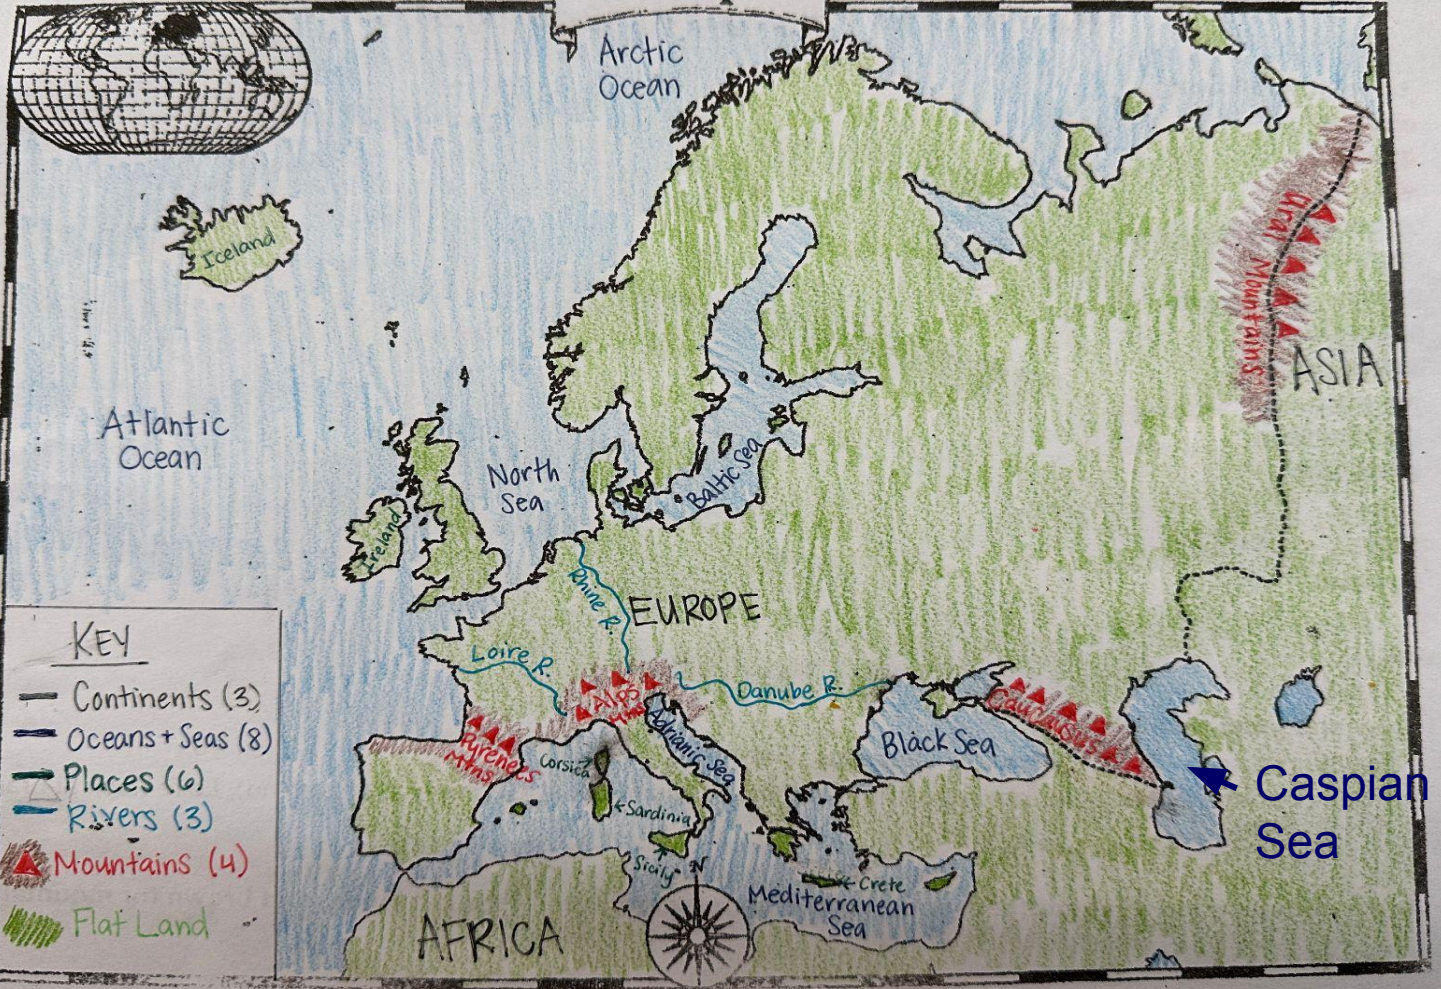 Arctic
Ocean
Iceland
Ural Mountains
ASIA
Atlantic
Ocean
North
Sea
Baltic Sea
Ireland
Rhine R.
EUROPE
Loire R.
Alps
Danube R.
Caucasus
Pyrenees
Mtns
Adrianic Sea
Black Sea
Caspian
Sea
Corsica
Sardinia
Sicily
N
Crete
Mediterranean
Sea
AFRICA
KEY
Continents (3)
Oceans + Seas (8)
Places (6)
Rivers (3)
Mountains (4)
Flat Land